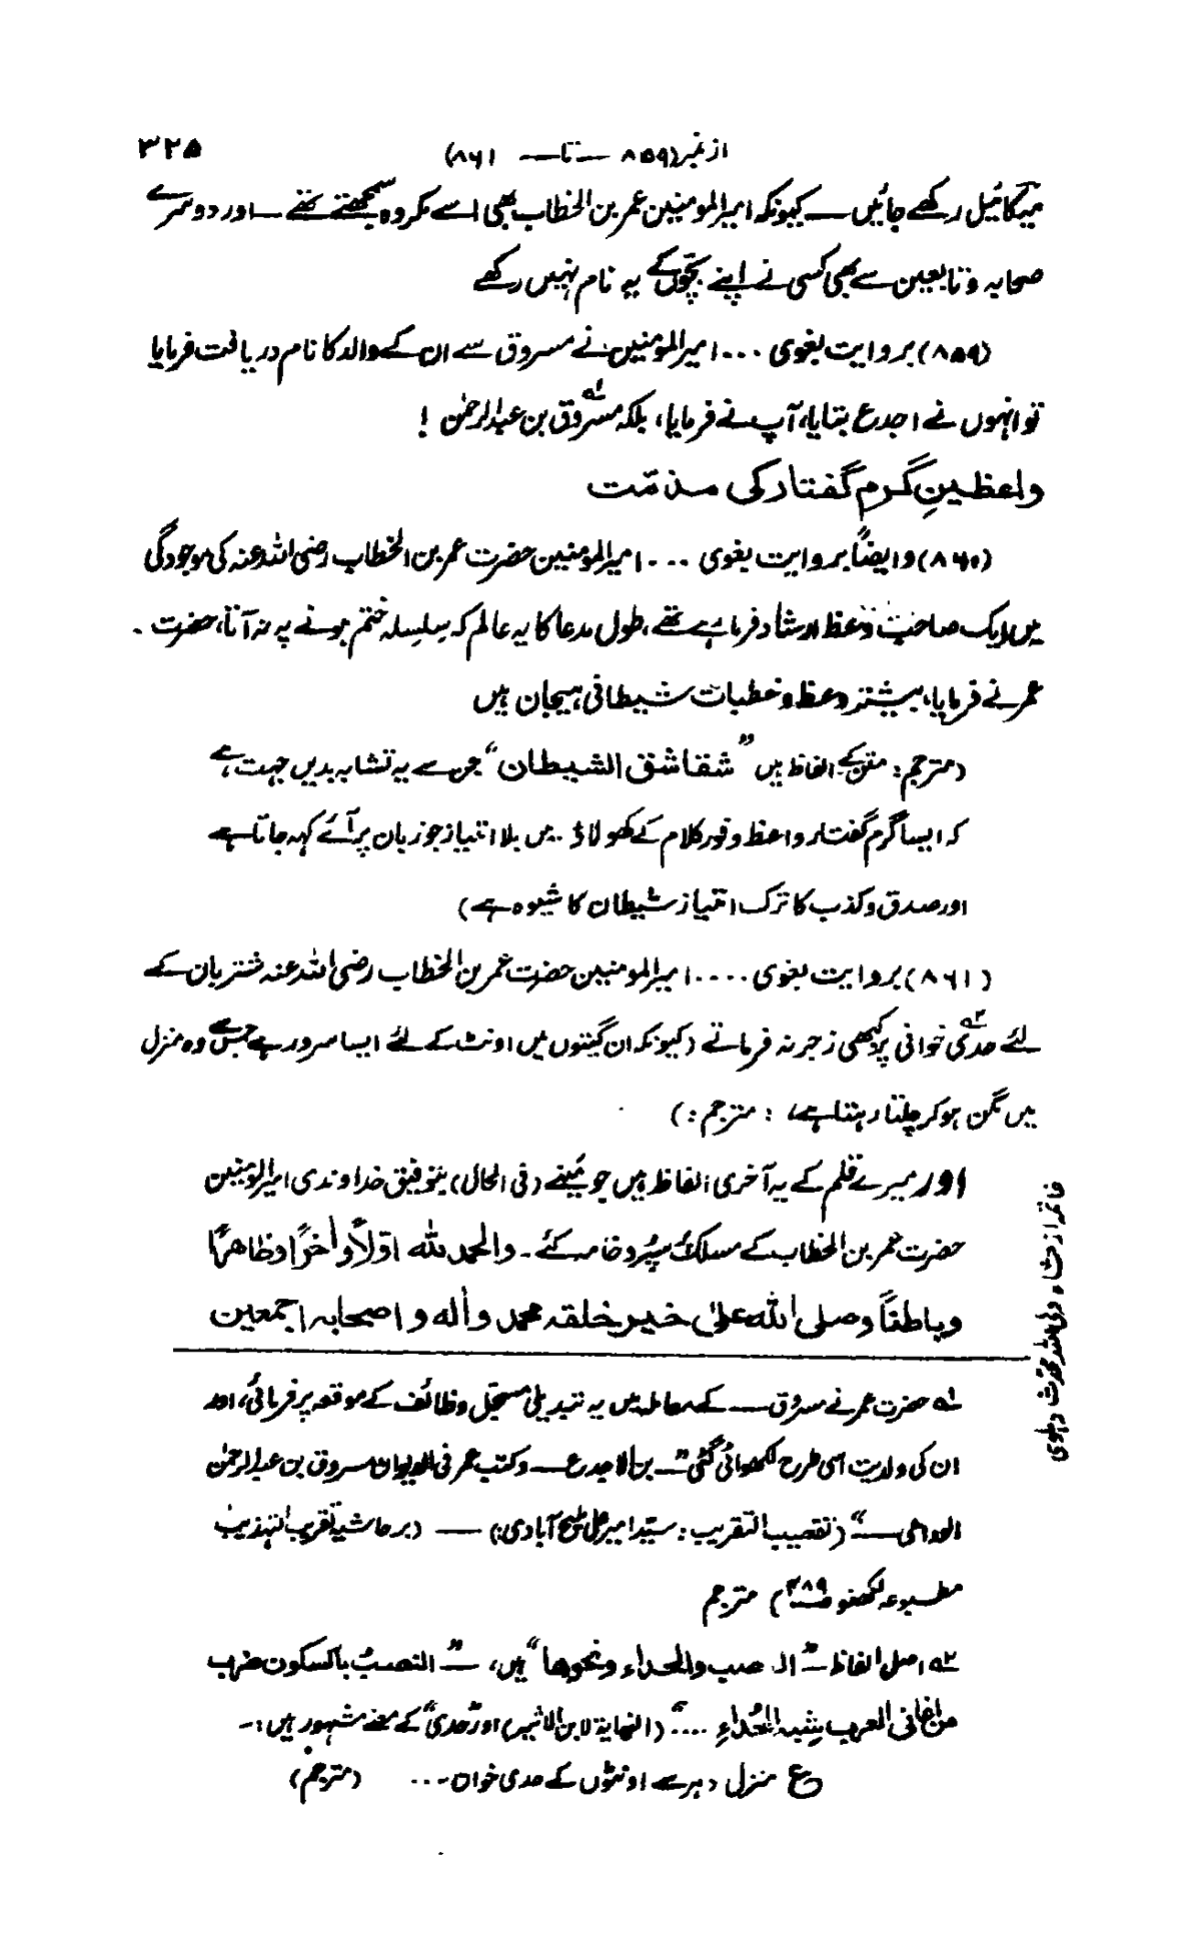 از نمبر (۸۵۹ — تا — ۸۶۱) ۳۲۵
میکائیل رکھے جائیں — کیونکہ امیرالمومنین عمر بن الخطاب بھی اسے مکروہ سمجھتے تھے — اور دوسرے
صحابہ و تابعین سے بھی کسی نے اپنے بچّوں کے یہ نام نہیں رکھے
(۸۵۹) بروایت بغوی ... امیرالمؤمنین نے مسروق سے ان کے والد کا نام دریافت فرمایا
تو انہوں نے اجدع بتایا، آپ نے فرمایا، بلکہ مسروق بن عبدالرحمٰن ! ؎۱
واعظینِ گرم گفتار کی مذمّت
(۸۶۰) وایضاً بروایت بغوی ... امیرالمومنین حضرت عمر بن الخطاب رضی اللہ عنہ کی موجودگی
میں ایک صاحب وعظ ارشاد فرما رہے تھے، طول مدعا کا یہ عالم کہ سلسلہ ختم ہونے پہ نہ آتا، حضرت
عمر نے فرمایا، بیشتر وعظ و خطبات شیطانی ہیجان ہیں
(مترجم: متن کے الفاظ ہیں ”شقاشق الشیطان“ جن سے یہ تشابہ بدیں جہت ہے
کہ ایسا گرم گفتار واعظ وفور کلام کے کھولاؤ میں بلا امتیاز جو زبان پر آئے کہہ جاتا ہے
اور صدق و کذب کا ترک امتیاز شیطان کا شیوہ ہے)
(۸۶۱) بروایت بغوی .... امیرالمومنین حضرت عمر بن الخطاب رضی اللہ عنہ شتربان کے
لئے حدی خوانی پر کبھی زجر نہ فرماتے ؎۲ (کیونکہ ان گیتوں میں اونٹ کے لئے ایسا سرور ہے جس سے وہ منزل
میں مگن ہو کر چلتا رہتا ہے، : مترجم:)
اور میرے قلم کے یہ آخری الفاظ ہیں جو مَیں نے (فی الحال) بتوفیق خداوندی امیرالمومنین
حضرت عمر بن الخطاب کے مسلک پر سپرد خامہ کئے۔ والحمد للہ اوّلاً وآخراً وظاھراً
وباطناً وصلی اللہ علیٰ خیر خلقہ محمد واٰلہ واصحابہ اجمعین
خاتمہ از شاہ ولی اللہ محدّث دہلوی
؎۱ حضرت عمر نے مسروق — کے معاملہ میں یہ تبدیلی مسجّل وظائف کے موقعہ پر فرمائی، اور
ان کی ولدیت اسی طرح لکھوائی گئی ”— بن الاجدع — وکتب عمر فی الدیوان مسروق بن عبدالرحمٰن
— “ (تقصیب التقریب: سیّد امیر علی ملیح آبادی) — (بر حاشیہ تقریب التہذیب
مطبوعہ لکھنو ص ۴۸۹) مترجم
؎۲ اصل الفاظ ”النصب والحداء ونحوھا“ ہیں، — ”النصبُ بالسکون ضرب
من اغانی العرب شبہ الحُداء ....“ (النہایۃ لابن الاثیر) اور ”حدی“ کے معنے مشہور ہیں:۔
ع منزل دہر سے اونٹوں کے حدی خوان ... (مترجم)